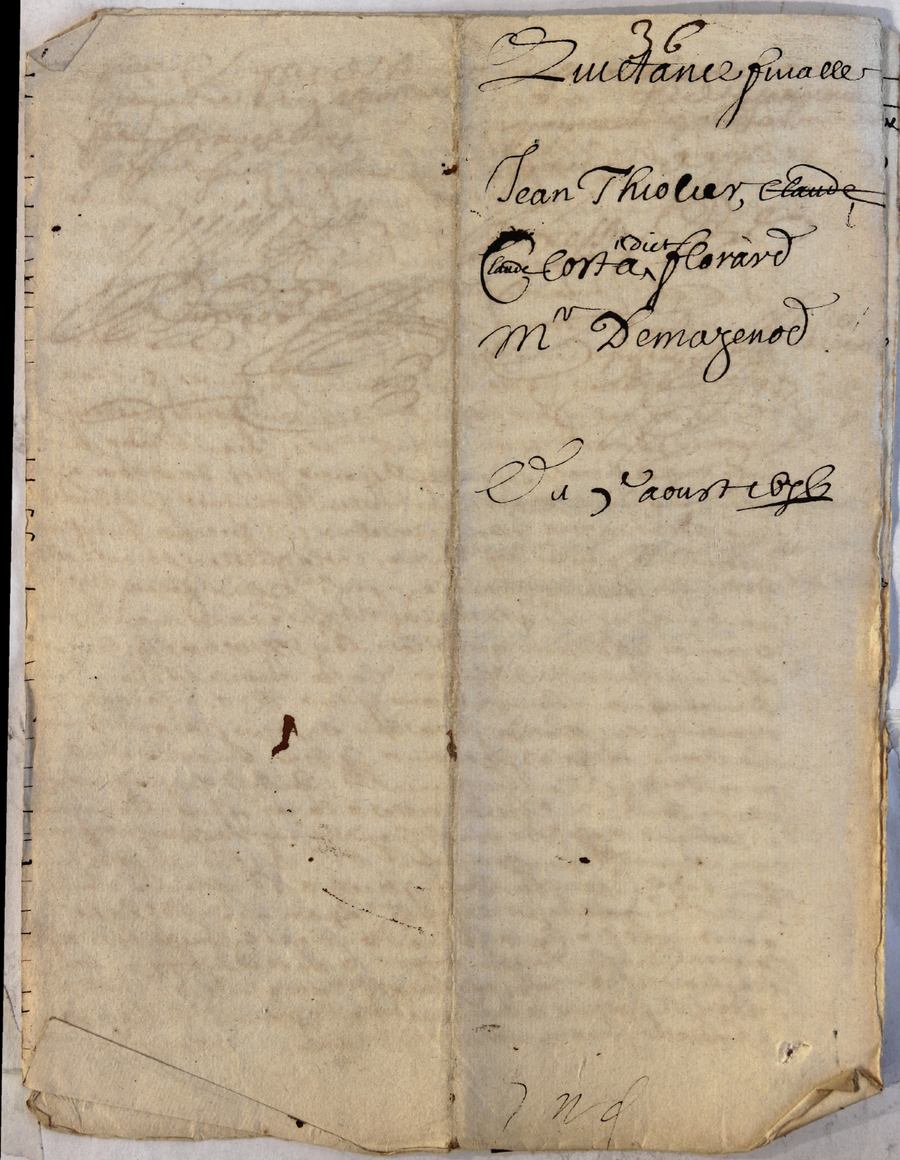 36
Quictance finalle
Jean Thiolier, Claude
Claude Costa dict florard
Mr Demazenod
Du 7e aoust